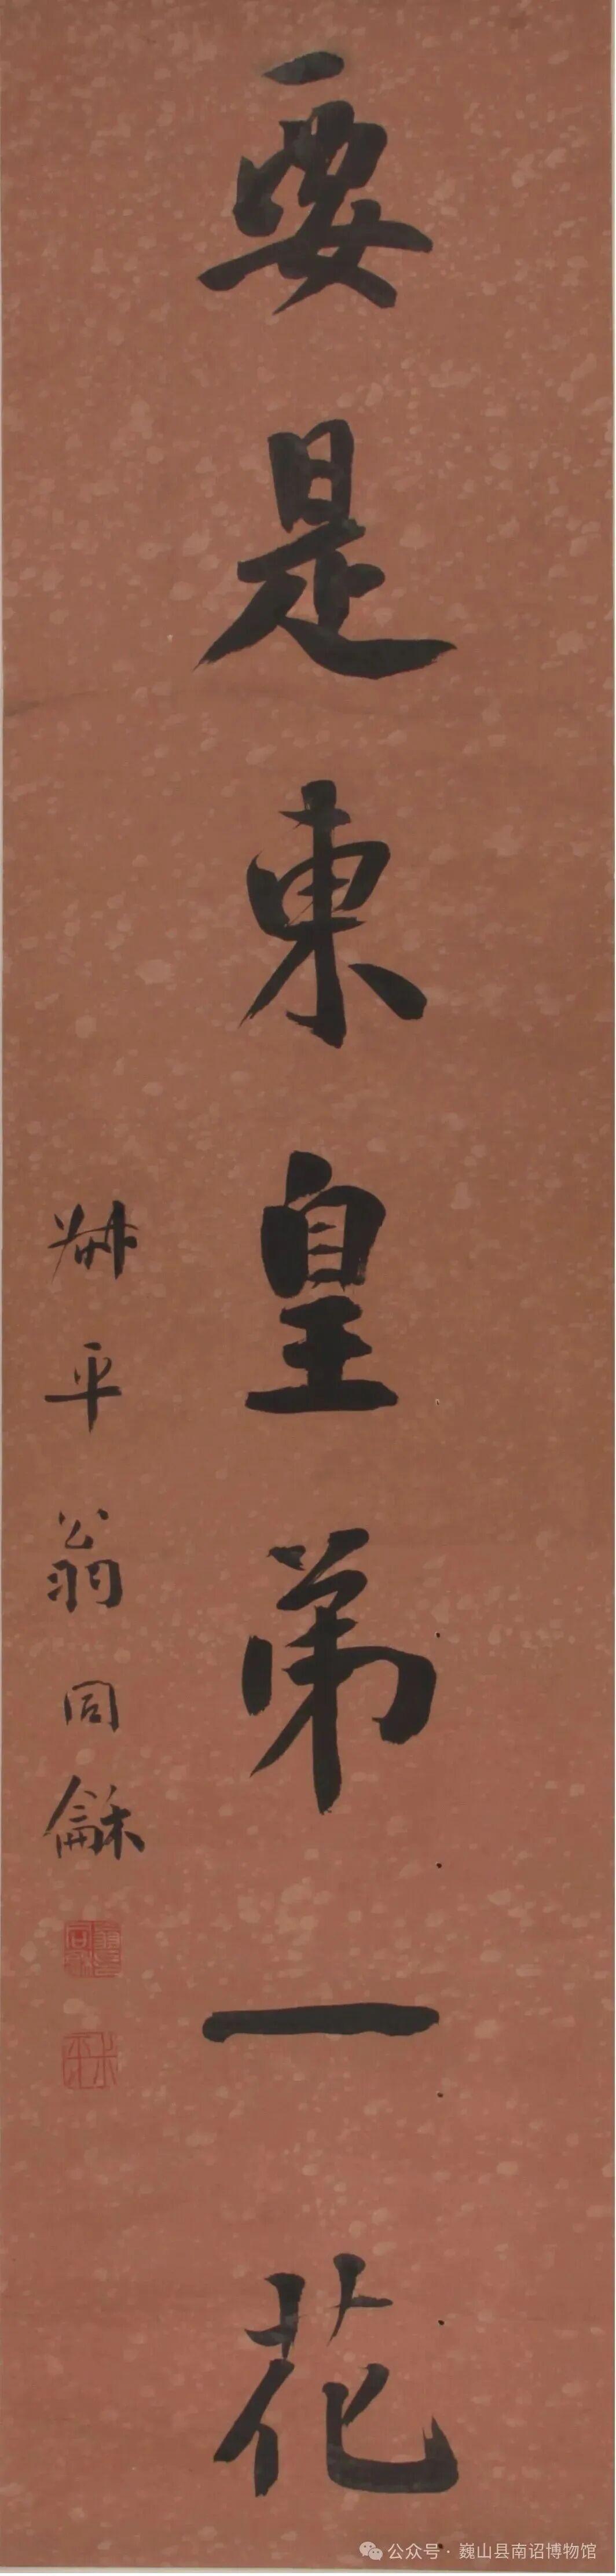 要是東皇弟一花
叔平翁同龢
公众号·巍山县南诏博物馆